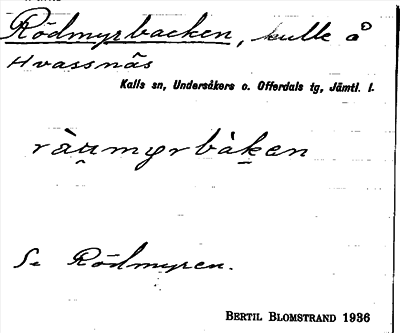 Rödmyrbacken, kulle å
Hvassnäs
Kalls sn, Undersåkers o. Offerdals tg, Jämtl. l.
Se Rödmyren.
BERTIL BLOMSTRAND 1936